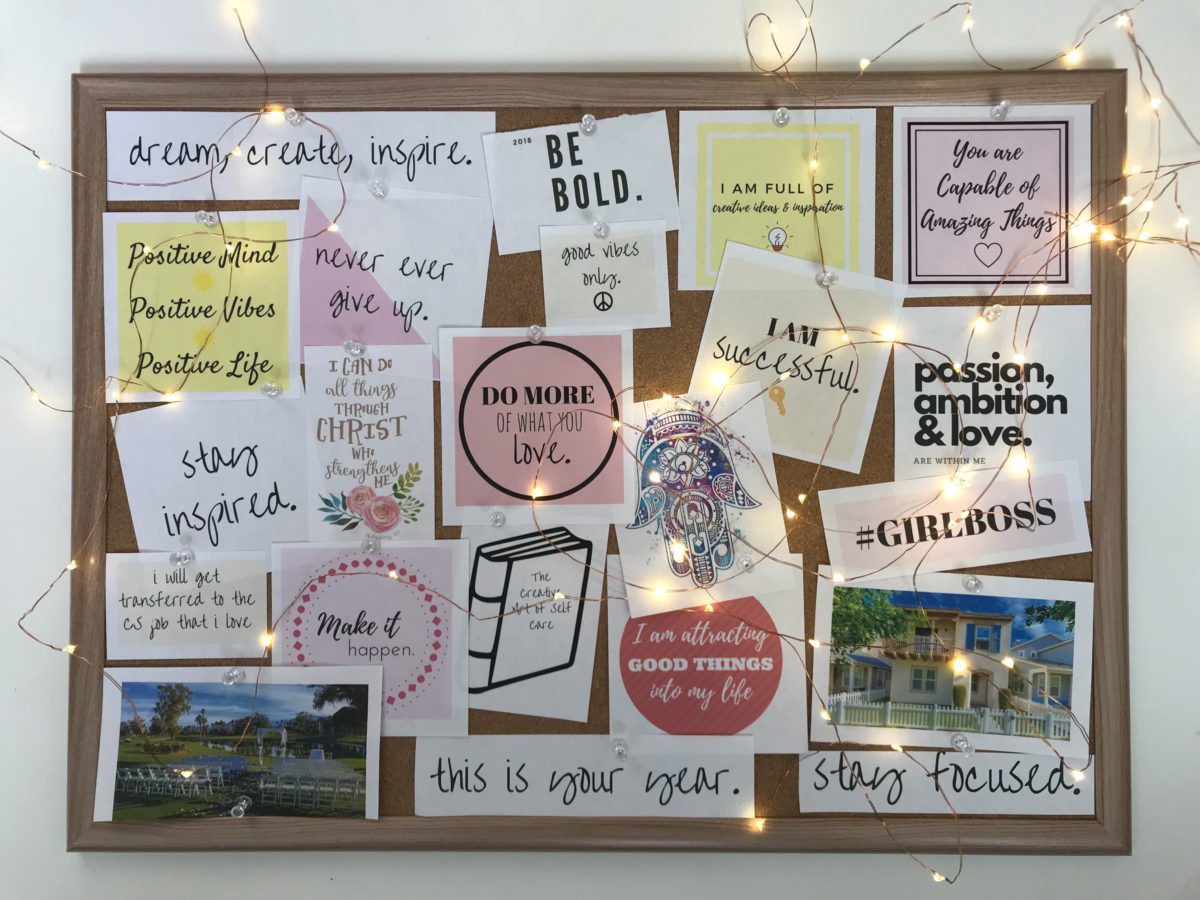 dream, create, inspire.
2018
BE
BOLD.
I AM FULL OF
creative ideas & inspiration
You are
Capable of
Amazing Things
Positive Mind
Positive Vibes
Positive Life
never ever
give up.
good vibes
only.
I AM
successful.
passion,
ambition
& love.
ARE WITHIN ME
I CAN DO
all things
THROUGH
CHRIST
WHO
strengthens
ME.
DO MORE
OF WHAT YOU
love.
stay
inspired.
#GIRLBOSS
i will get
transferred to the
CS job that i love
Make it
happen.
The
creative
Art of Self
care
I am attracting
GOOD THINGS
into my life
this is your year.
stay focused.